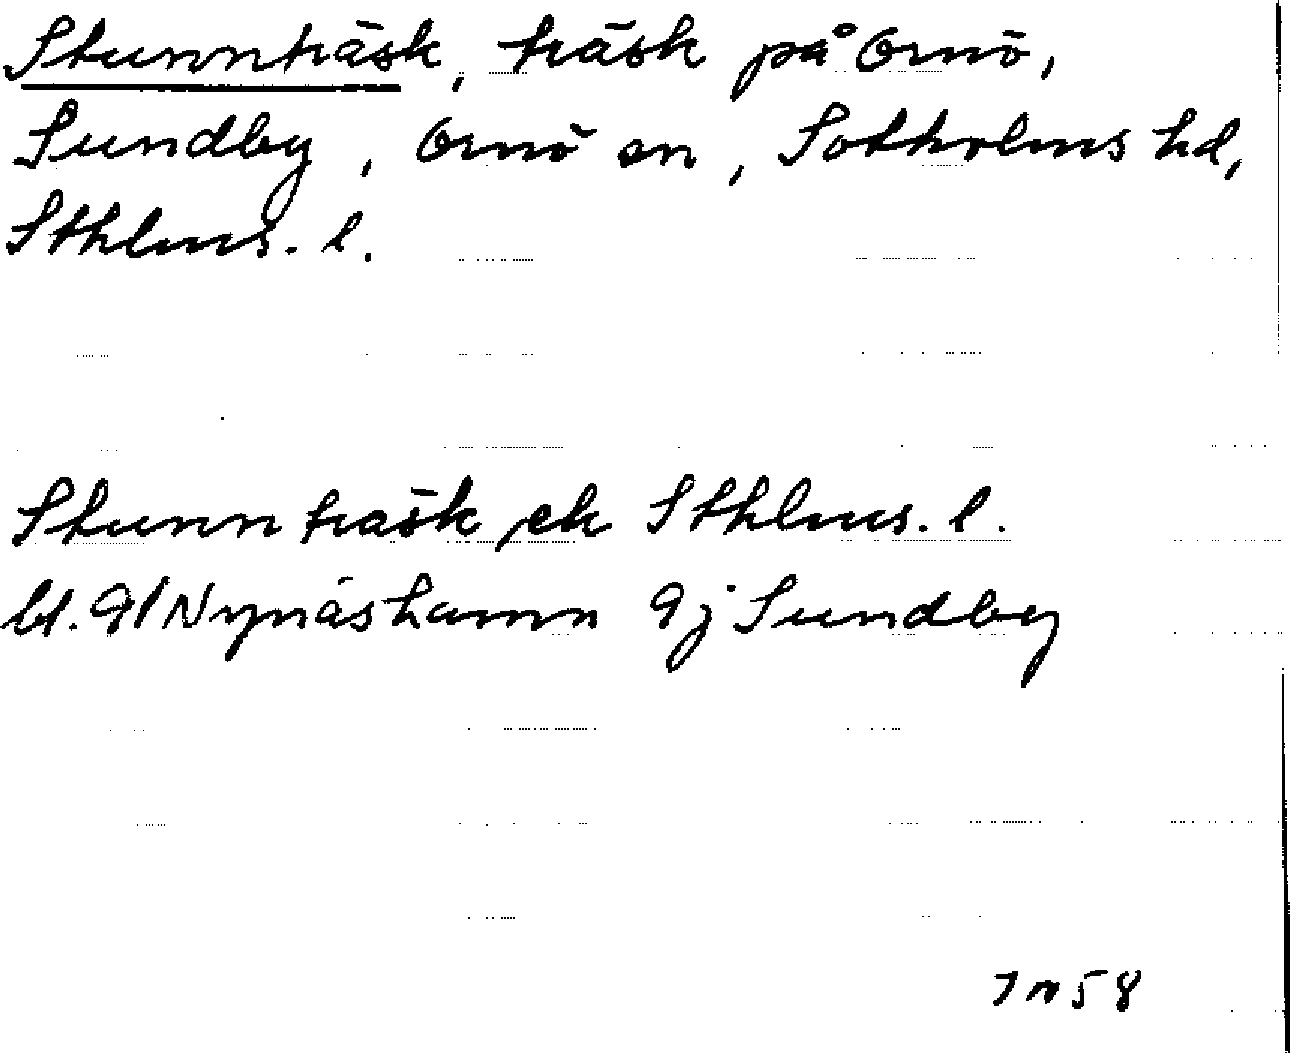 Stunnträsk, träsk på Ornö,
Sundby, Ornö sn, Sotholms hd,
Sthlms. l.
Stunnträsk, ek Sthlms. l.
bl. 91 Nynäshamn 9j Sundby
58